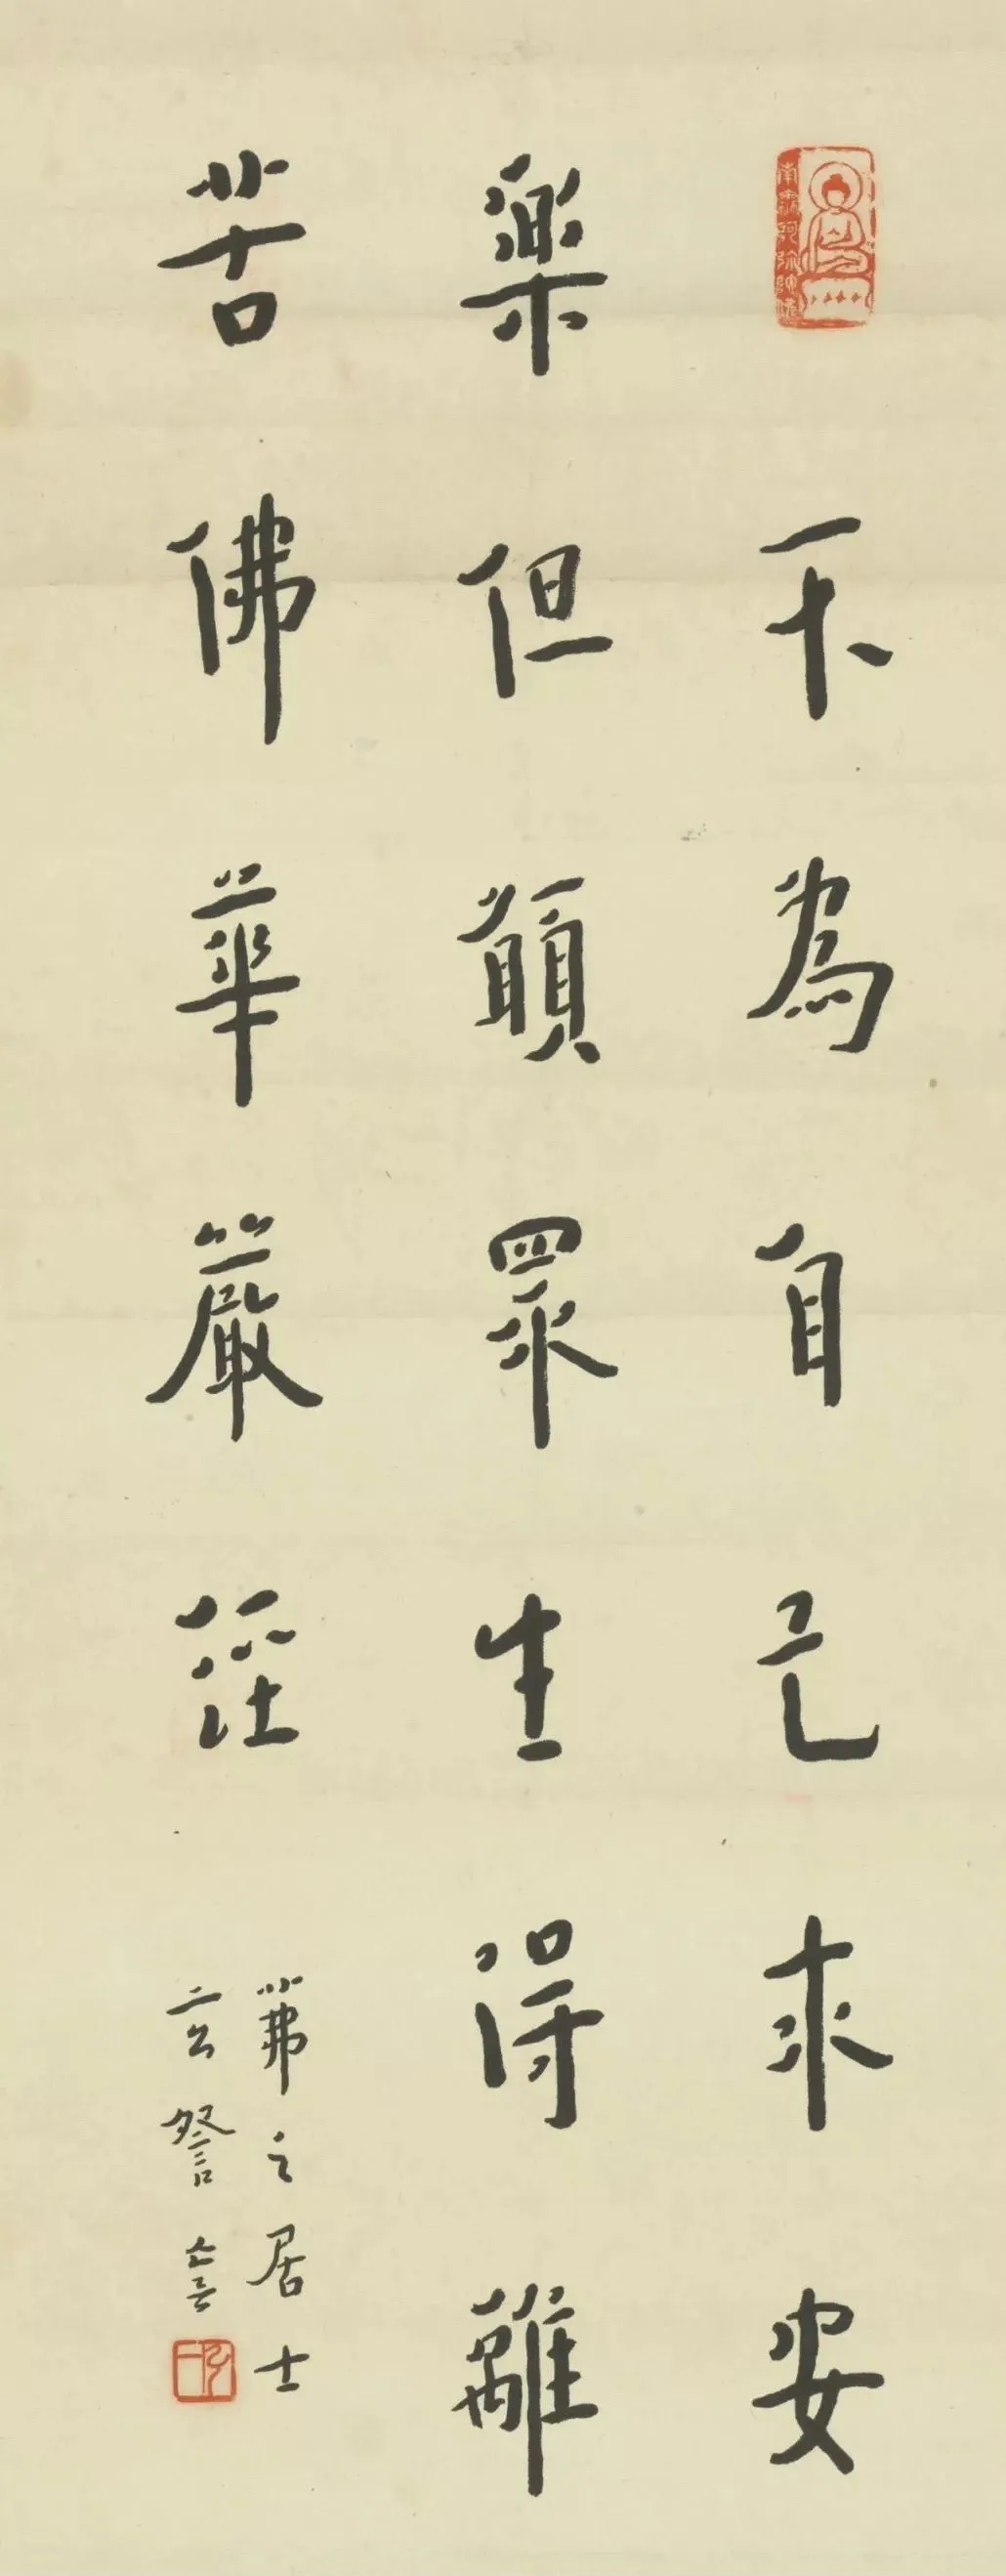 南無阿彌陀佛
不為自己求安
樂但願眾生得離
苦佛華嚴經
茀之居士
玄詧書